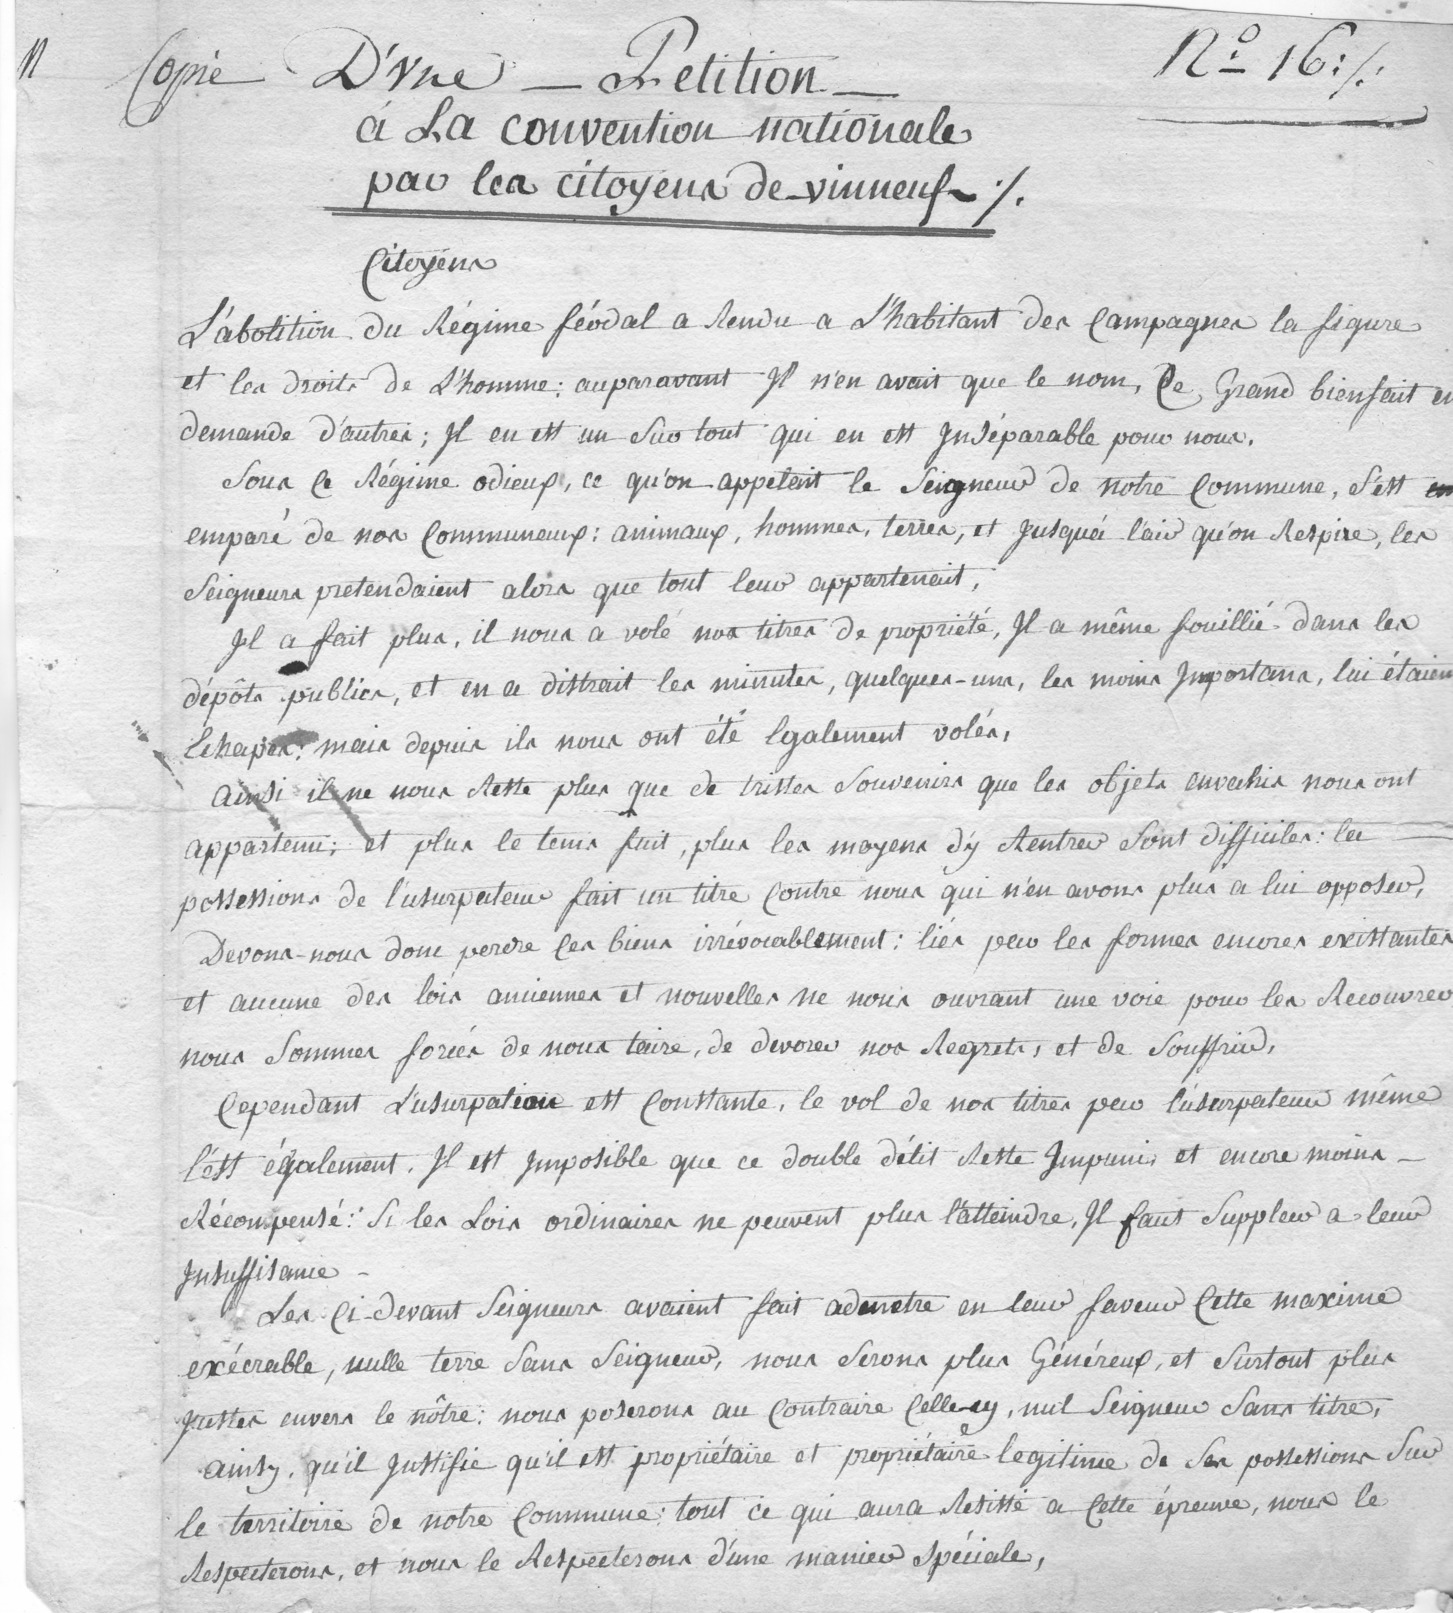 N
Copié D'Une — Petition — N.º 16:/:
á La convention nationale
par les citoyens de vinneuf ./.
Citoyens
L'abolition du Régime féodal a Rendu a L'habitant des Campagnes la figure
et les droits de L'homme: auparavant Il n'en avait que le nom, Ce Grand bienfait en
demande d'autres; Il en est un Sur tout qui en est Inséparable pour nous.
Sous Ce Régime odieux, ce qu'on appelait le Seigneur de notre Commune, s'est
emparé de nos Communeaux: animaux, hommes, terres, et Jusquá l'air qu'on Respire, les
Seigneurs pretendaient alors que tout leur appartenait,
Il a fait plus, il nous a volé nos titres de propriété, Il a même fouillié dans les
dépôts publics, et en a distrait les minutes, quelques-uns, les moins Importans, lui étaien
Echapés: mais depuis ils nous ont été Egalement volés,
ainsi il ne nous Reste plus que de tristes Souvenirs que les objets envahis nous ont
appartenu; et plus le tems fuit, plus les moyens d'y Rentrer Sont difficiles: les
possessions de l'usurpateur fait un titre Contre nous qui n'en avons plus a lui opposer,
Devons-nous donc perdre Ces biens irrévocablement: liés par les formes encores existantes
et aucune des lois anciennes et nouvelles ne nous ouvrant une voie pour les Recouvrer
nous Sommes forcés de nous taire, de devorer nos Regrets, et de Souffrir,
Cependant L'usurpation est Constante, le vol de nos titres par l'usurpateur même
l'est également. Il est Imposible que ce double délit Reste Impuni, et encore moins —
Récompensé: Si les Lois ordinaires ne peuvent plus l'atteindre, Il faut Suppleer a leur
Insuffisance —
Les Ci-devant Seigneurs avaient fait admetre en leur faveur Cette maxime
exécrable, nulle terre Sans Seigneur, nous Serons plus Généreux, et Surtout plus
Justes envers le nôtre: nous poserons au Contraire Celle-cy, nul Seigneur Sans titre,
ainsy, qu'il Justifie qu'il est propriétaire et propriétaire legitime de Ses possessions Sur
le territoire de notre Commune: tout ce qui aura Resisté a Cette épreuve, nous le
Respecterons, et nous le Respecterons d'une manier Spéciale,